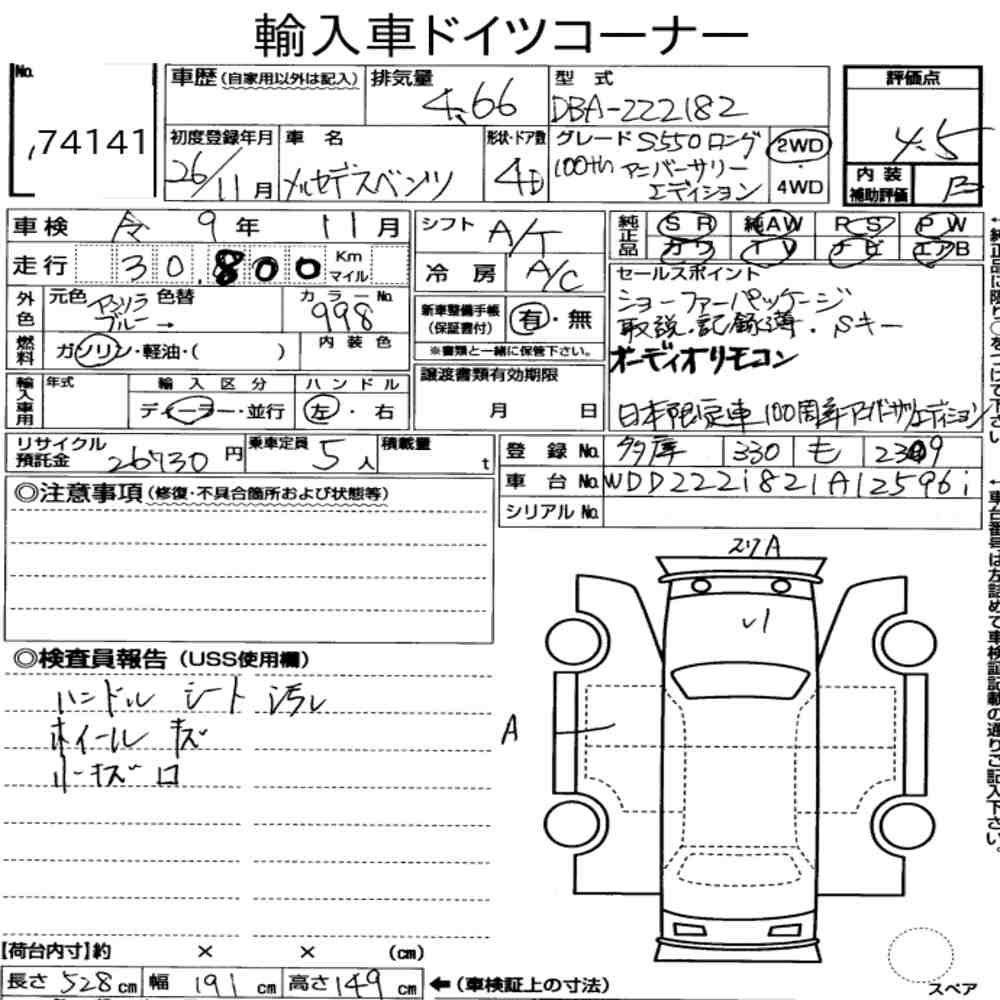 輸入車ドイツコーナー
No. 74141
車歴 (自家用以外は記入)
排気量 4.66
型式 DBA-222182
評価点 4.5
内装補助評価 B
初度登録年月 26/11月
車名 メルセデスベンツ
形状・ドア数 4D
グレード S550 ロング
100th アニバーサリー
エディション
2WD
・
4WD
車検 令 9年 11月
シフト A/T
純正品 SR 純AW RS PW
カワ TV ナビ エアB
走行 30,800 Km マイル
冷房 A/C
セールスポイント
ショーファーパッケージ
取説・記録簿・Sキー
オーディオリモコン
日本限定車 100周年アニバーサリーエディション
外色 元色 アンソラブルー 色替 →
カラーNo. 998
新車整備手帳 (保証書付) 有・無
※書類と一緒に保管下さい。
燃料 ガソリン・軽油・( )
内装色
譲渡書類有効期限
月 日
輸入車用 年式
輸入区分 ディーラー・並行
ハンドル 左・右
リサイクル預託金 26730円
乗車定員 5人
積載量 t
登録No. 多摩 330 も 2309
車台No. WDD2221821A125961
シリアルNo.
◎注意事項 (修復・不具合箇所および状態等)
◎検査員報告 (USS使用欄)
ハンドル シート 汚レ
ホイール キズ
小キズ 有
スリA
A
【荷台内寸】約 × × (cm)
長さ 528cm 幅 191cm 高さ 149cm ←(車検証上の寸法)
スペア
←車台番号は左詰めで車検証記載の通りご記入下さい。